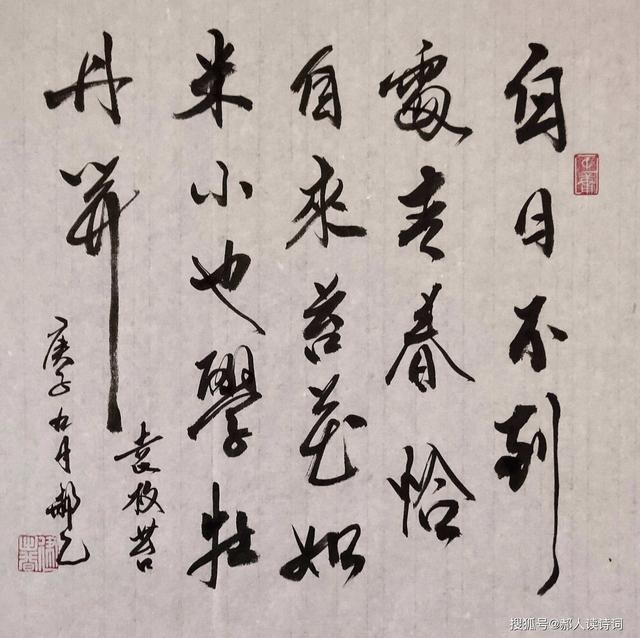 白日不到
處青春恰
自來苔花如
米小也學牡
丹開
袁枚苔
庚子九月郝
搜狐号@郝人读诗词